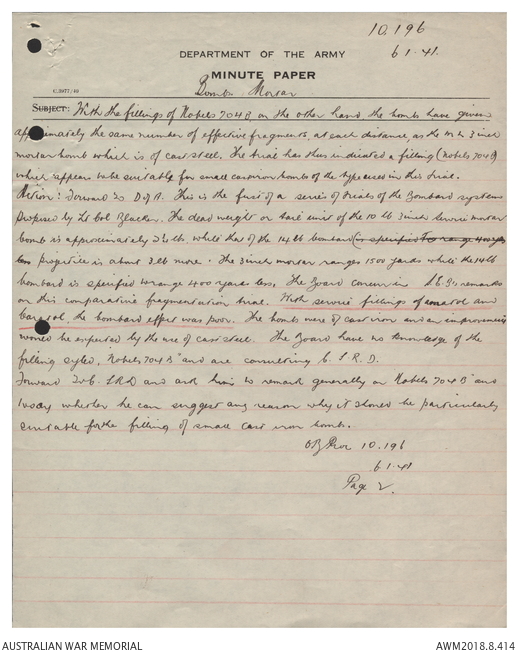 10,196
6.1.41.
DEPARTMENT OF THE ARMY
MINUTE PAPER
C.3977/40
Bomb Mortar
SUBJECT: With the fillings of Nobels 704B, on the other hand the bombs have given
approximately the same number of effective fragments, at each distance as the M.L. 3 inch
mortar bomb which is of cast steel. The trial has thus indicated a filling (Nobels 704B)
which appears to be suitable for small cast iron bombs of the type used in this trial.
Action: Forward to D of A. This is the first of a series of trials of the Bombard system
proposed by Lt Col Blacker. The dead weight or tail unit of the 10 lb 3 inch service mortar
bomb is approximately 2½ lb. while that of the 14 lb bombard (is specified to range 400 yds
less projectile is about 3 lb more. The 3 inch mortar ranges 1500 yards while the 14 lb
bombard is specified to range 400 yards less. The Board concur in S. of E's remarks
on this comparative fragmentation trial. With service fillings of amatol and
baratol, the bombard effect was poor. The bombs were of cast iron and an improvement
would be expected by the use of cast steel. The Board have no knowledge of the
filling styled, Nobels 704B" and are consulting C.S.R.D.
Forward to C.S.R.D and ask him to remark generally on Nobels 704B" and
to say whether he can suggest any reason why it should be particularly
suitable for the filling of small cast iron bombs.
OB Proc 10.196
6.1.41
Page 2.
AUSTRALIAN WAR MEMORIAL
AWM2018.8.414